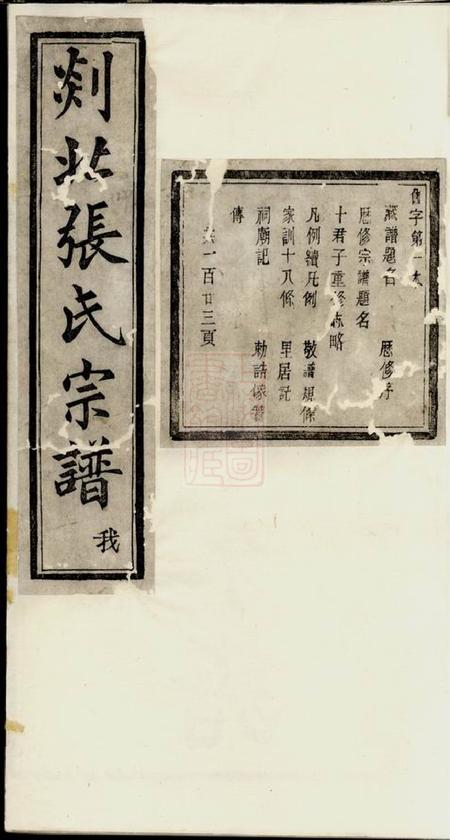 剡北張氏宗譜
我
字第一本
藏譜題名 歷修序
歷修宗譜題名
十君子重修志略
凡例續凡例 敬譜規條
家訓十八條 里居記
祠廟記 勅誥像贊
傳
共一百廿三頁
上海圖書館藏